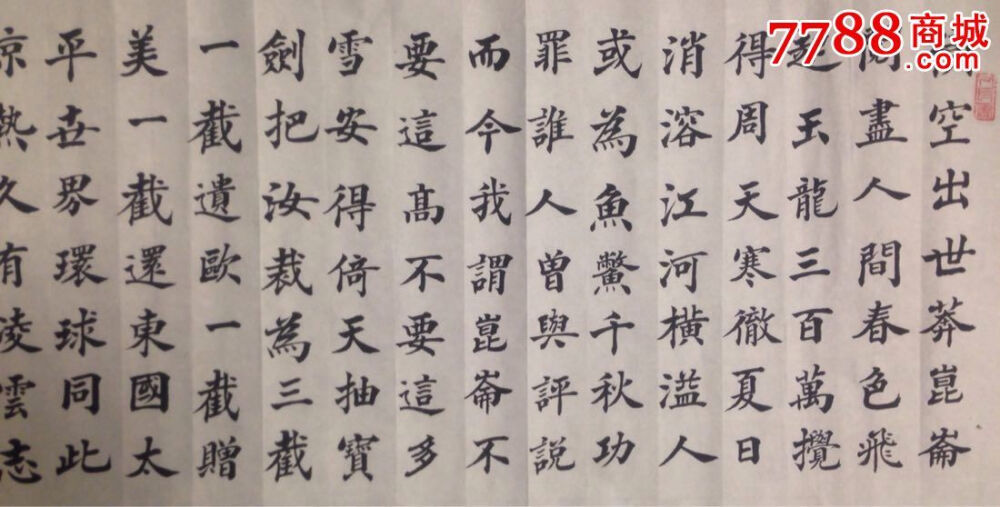 7788商城
.com
空出世莽崑崙
閱盡人間春色飛
起玉龍三百萬攪
得周天寒徹夏日
消溶江河橫溢人
或為魚鱉千秋功
罪誰人曾與評說
而今我謂崑崙不
要這髙不要這多
雪安得倚天抽寶
劍把汝裁為三截
一截遺歐一截贈
美一截還東國太
平世界環球同此
涼熱久有凌雲志